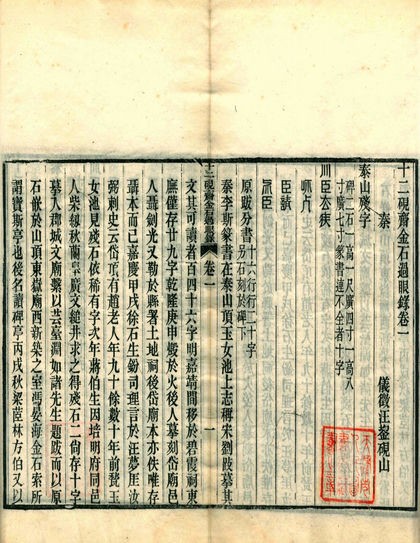 十二硯齋金石過眼錄卷一
儀徵汪鋆硯山
秦
泰山殘字
碑二石一高一尺廣四寸一高八
寸廣七寸篆書連不全者十字
川臣去疾
昧死
臣請
臣
原跋分書十六行行二十字
另石刻於碑下
秦李斯篆書在泰山頂玉女池上志稗宋劉跂摹其
文其可讀者百四十六字明嘉靖間移於碧霞祠東
廡僅存廿九字乾隆庚申燬於火後人摹刻岱廟邑
人聶劍光又勒於縣署土地祠後岱廟本亦佚唯存
聶本而已嘉慶甲戌徐石生鈖司理言於汪夢厓汝
弼刺史云岱頂有趙老人年九十餘數十年前葺玉
女池見殘石依稀有字次年蔣伯生因培明府同邑
人柴緩秋蘭皋廣文縋井求之得殘石二尚存十字
摹入郡城文廟綴以芸臺淵如諸先生題跋而以原
石嵌於山頂東嶽廟西新築之室馮晏海金石索所
謂寶斯亭也後名讀碑亭丙戌秋梁茝林方伯又以
十二硯齋金石過眼錄
卷一
一